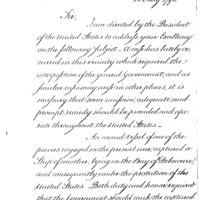 Sir,
I am directed by the President
of the United States to address your Excellency
on the following subject. A case has lately oc-
curred in this vicinity which required the
interposition of the general Government; and as
similar cases may arise in other places, it is
necessary that some uniform, adequate and
prompt remedy should be provided and oper-
ate throughout the United States.
An armed vessel of one of the
powers engaged in the present war, captured a
Ship of another, lying in the Bay of Delaware,
and consequently under the protection of the
United States. Both duty and honor required
that the Government should cause the captured